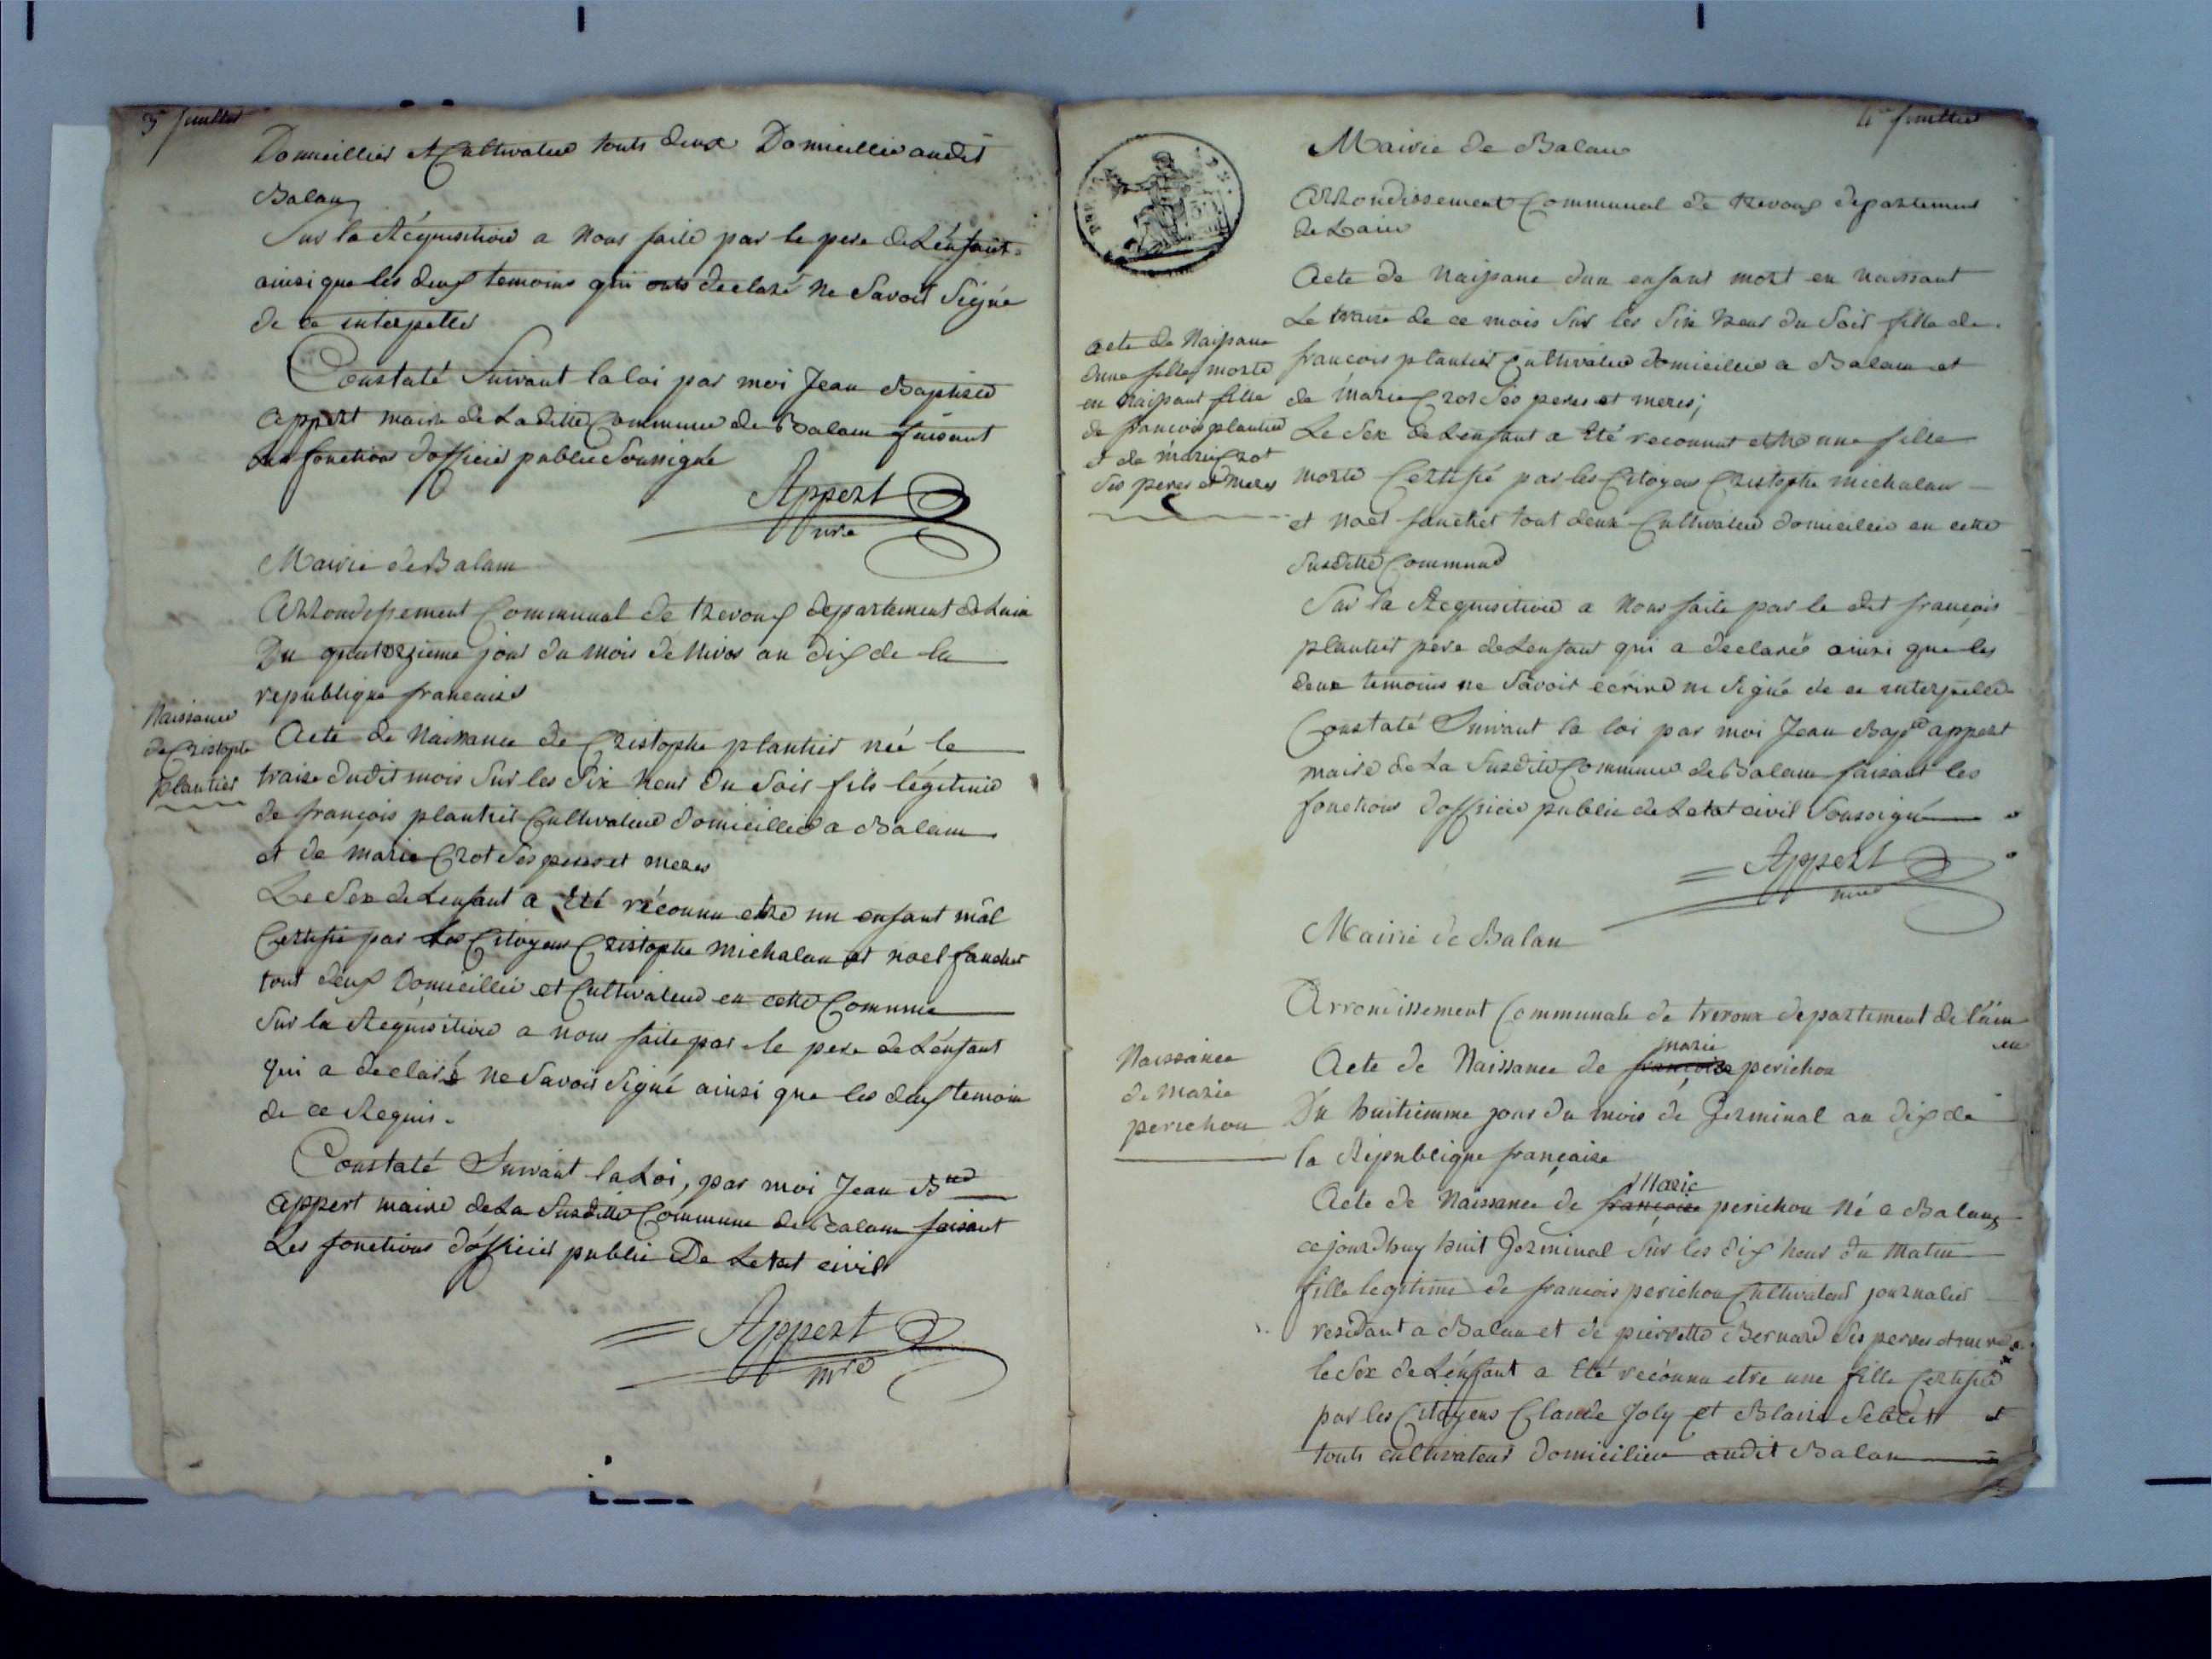 3e feuillet
Domeillier et Cultivateur touts deux Domicillié audit
Balan
Sur la Réquisition a Nous faite par le pere de Lénfant
ainsi que les deux temoins qui onts declaré ne Savoir Signé
de ce interpellé
Constaté Suivant la loi par moi Jean Baptiste
appert maire de Laditte Commune de Balan faisant
Les fonctions dofficier public Soussigné
Appert
mre
Mairie de Balan
Arrondissement Communal de trevoux departement de Lain
Du quatorzieme jour du mois de Nivos an dix de la
republique francaise
Naissance
de Cristophe
plantier
Acte de Naissance de Cristophe plantier née le
traize dudit mois Sur les Six heur du Soir fils légitime
de françois plantier Cultivateur domicillié a Balan
et de marie Crot Ses peres et meres
Le Sex de Lenfant a Eté réconnu etre un enfant mâl
Certifié par les Citoyens Cristophe michalan et noel fauchet
tout deux Domicillié et Cultivateur en cette Commune
Sur la Requisition a nous faite par le pere de Lénfant
qui a declaré ne Savoir Signé ainsi que les deux temoin
de ce Requis.
Constaté Suivant la Loi, par moi Jean Bte
appert maire de La Susditte Commune de Balan faisant
Les fonctions dófficier public De Letat civil
Appert
mre
4e feuillet
Mairie de Balan
Arrondissement Communal de trevoux departement
de Lain
Acte de Naissance dun enfant mort en naissant
Le traize de ce mois Sur les Six heur du Soir fille de
acte de Naissance
dune fille morte
en naissant fille
de francois plantier
et de marie Crot
Ses peres et meres
francois plantier Cultivateur domicillié a Balan et
de marie Crot Ses peres et meres;
Le Sex de Lenfant a Eté reconnut etre une fille
morte Certifié par les Citoyens Cristophe michalan
et Noel fauchet tout deux Cultivateur domicilié en cette
Susditte Commune
Sur la Requisition a Nous faite par le dit françois
plantier pere de Lenfant qui a declaré ainsi que les
deux temoins ne Savoir ecrire ni Signé de ce interpellé
Constaté Suivant la loi par moi Jean Bapte appert
maire de La Susdite Commune de Balan faisant les
fonctions dofficier public de Letat civil Soussigné
Appert
mre
Mairie de Balan
Arrondissement Communale de trevoux departement de l'ain
Naissance
de marie
perichon
marie
Acte de Naissance de françoise perichon
Du huitiemme jour du mois de Germinal an dix de
la République française
Marie
Acte de Naissance de françoise perichon Né a Balan
ce jourdhuy huit Germinal Sur les dix heur du Matin
fille legitime de francois perichon Cultivateur journalier
residant a Balan et de pierrette Bernard Ses peres et meres
le Sex de Lénfant a Eté réconnu etre une fille Certifié
par les Citoyens Claude Joly et Blaise et
touts cultivateur domicilier audit Balan